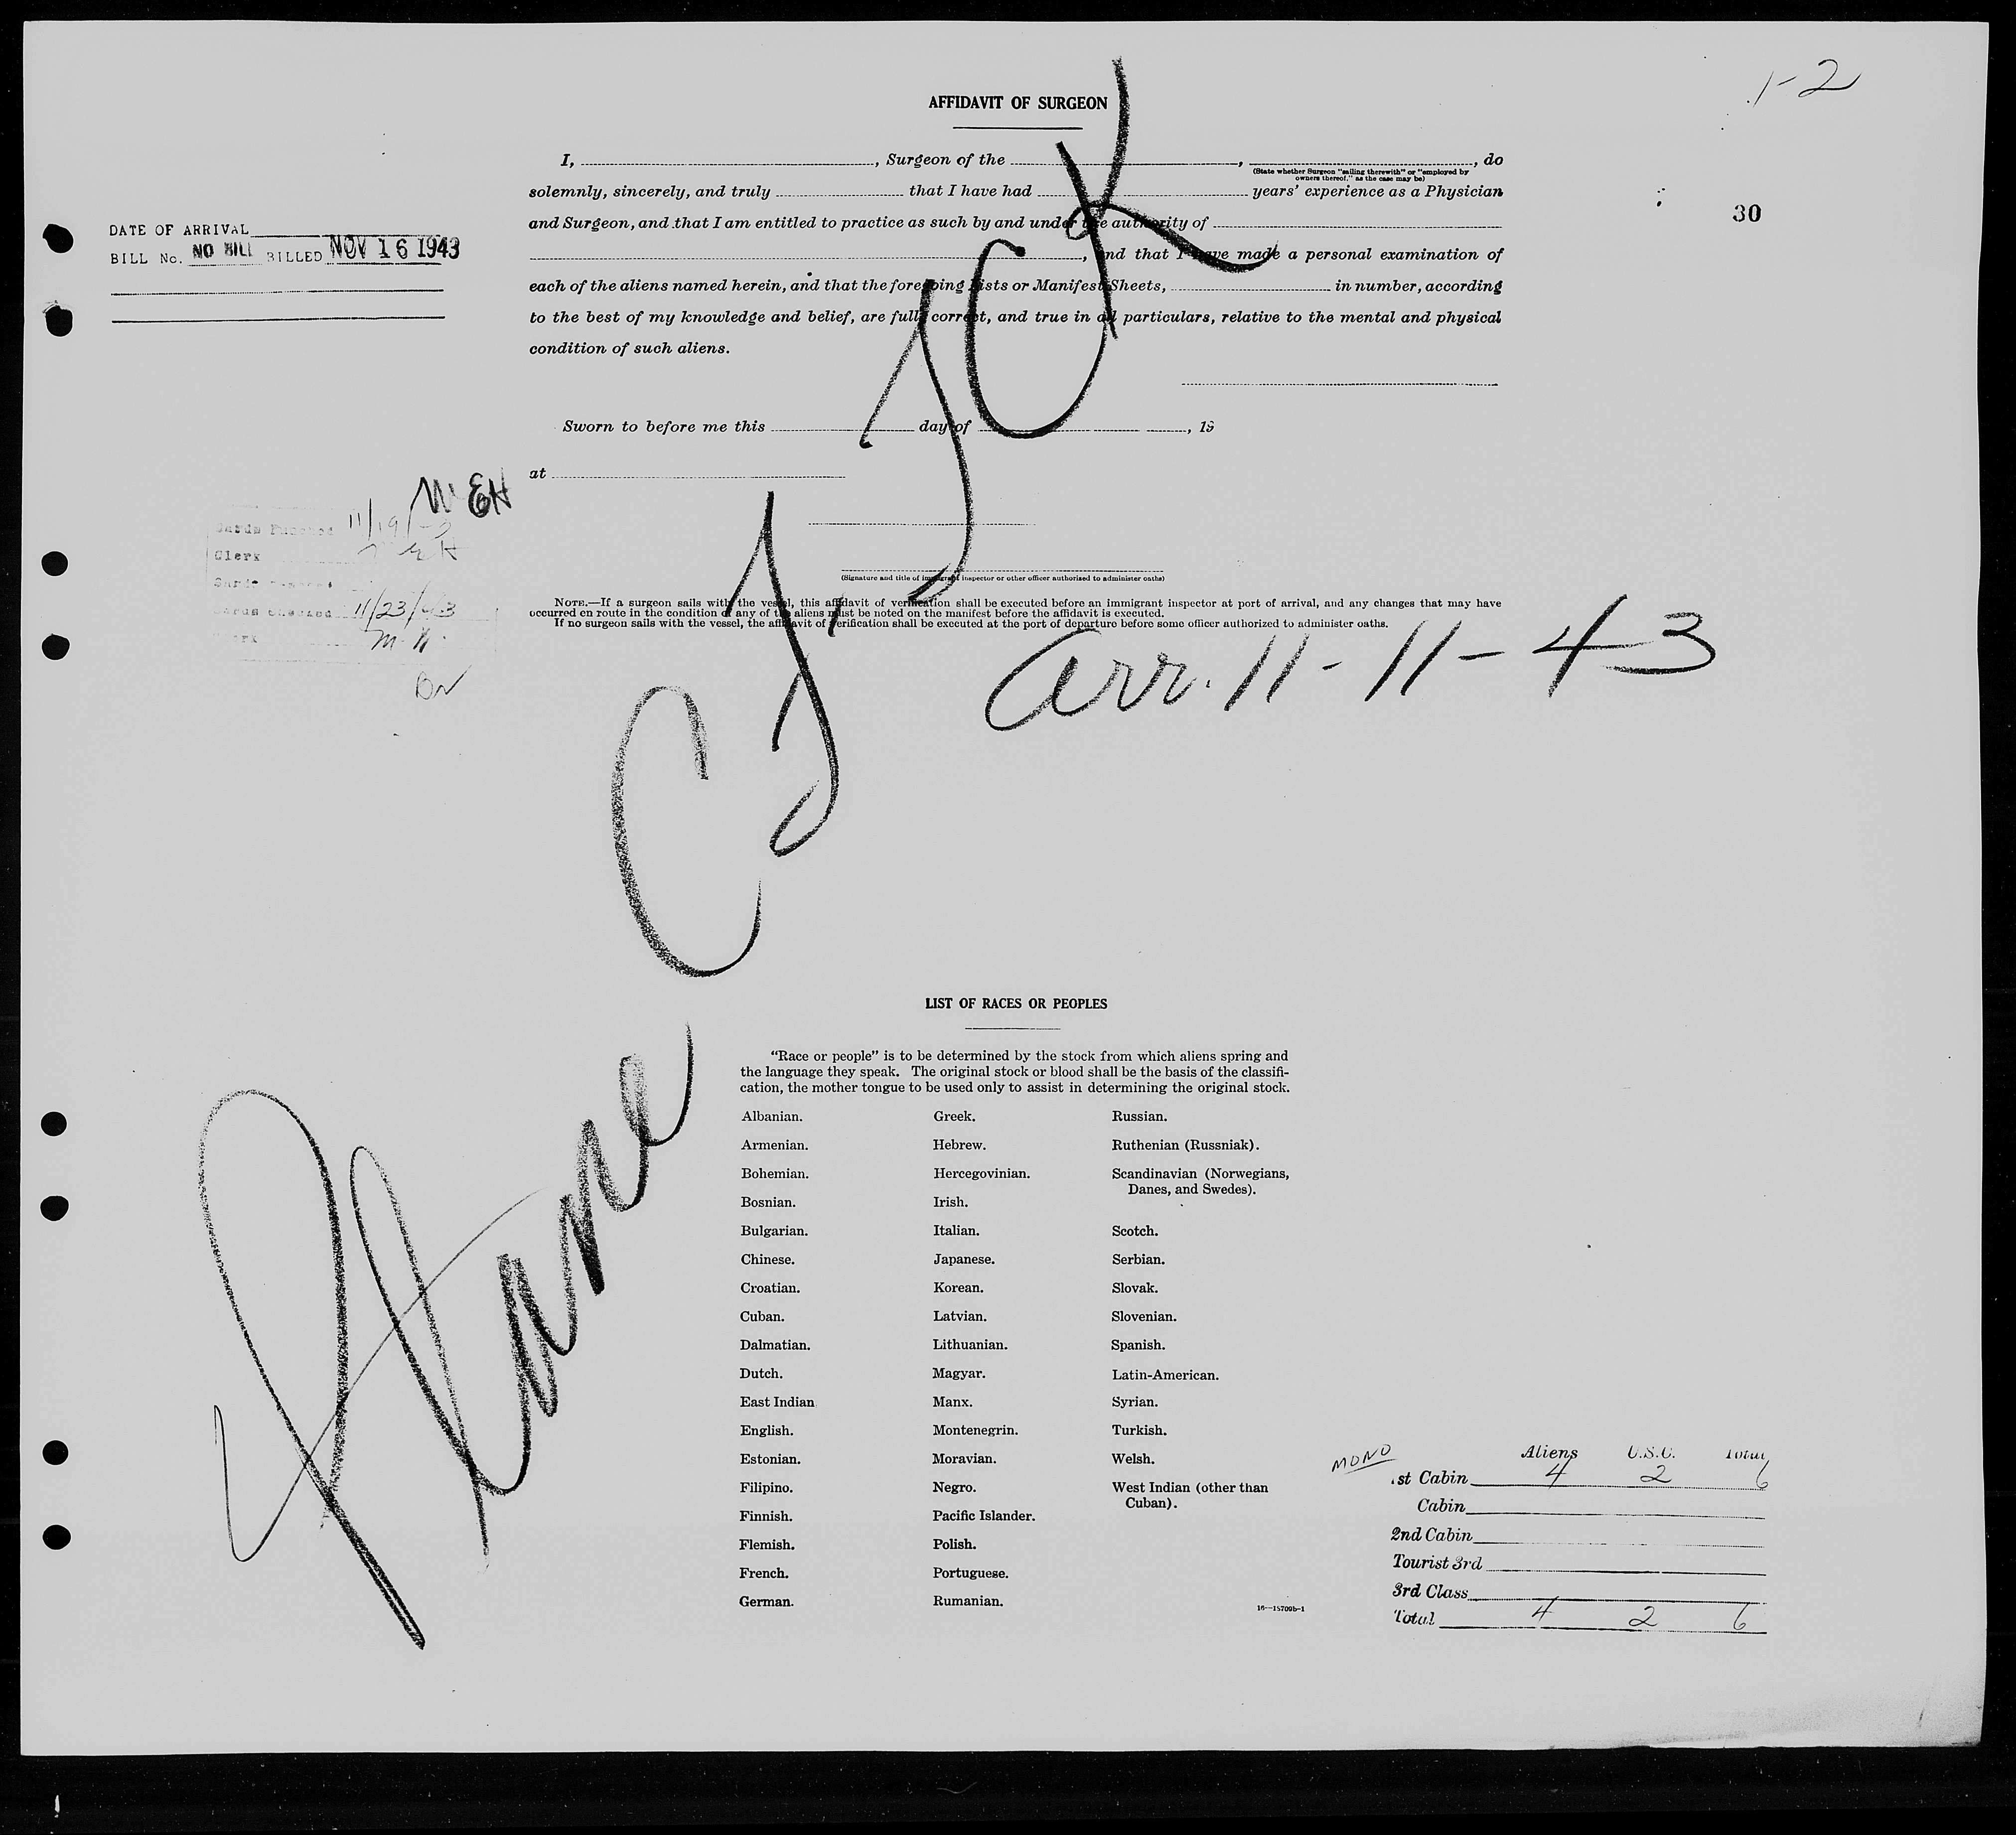 1-2
AFFIDAVIT OF SURGEON
I, , Surgeon of the , , do
(State whether Surgeon "sailing therewith" or "employed by
owners thereof," as the case may be)
solemnly, sincerely, and truly that I have had years' experience as a Physician
30
and Surgeon, and that I am entitled to practice as such by and under the authority of
, and that I have made a personal examination of
each of the aliens named herein, and that the foregoing Lists or Manifest Sheets, in number, according
to the best of my knowledge and belief, are full, correct, and true in all particulars, relative to the mental and physical
condition of such aliens.
DATE OF ARRIVAL
BILL No. NO BILL BILLED NOV 16 1943
Sworn to before me this day of , 19
at
(Signature and title of immigrant inspector or other officer authorized to administer oaths)
MEH
Cards Punched 11/19/-3
Clerk
Cards Checked 11/23/43
Clerk M.H.
NOTE.—If a surgeon sails with the vessel, this affidavit of verification shall be executed before an immigrant inspector at port of arrival, and any changes that may have
occurred en route in the condition of any of the aliens must be noted on the manifest before the affidavit is executed.
If no surgeon sails with the vessel, the affidavit of verification shall be executed at the port of departure before some officer authorized to administer oaths.
arr. 11-11-43
LIST OF RACES OR PEOPLES
"Race or people" is to be determined by the stock from which aliens spring and
the language they speak. The original stock or blood shall be the basis of the classifi-
cation, the mother tongue to be used only to assist in determining the original stock.
Albanian.
Armenian.
Bohemian.
Bosnian.
Bulgarian.
Chinese.
Croatian.
Cuban.
Dalmatian.
Dutch.
East Indian
English.
Estonian.
Filipino.
Finnish.
Flemish.
French.
German.
Greek.
Hebrew.
Hercegovinian.
Irish.
Italian.
Japanese.
Korean.
Latvian.
Lithuanian.
Magyar.
Manx.
Montenegrin.
Moravian.
Negro.
Pacific Islander.
Polish.
Portuguese.
Rumanian.
Russian.
Ruthenian (Russniak).
Scandinavian (Norwegians,
Danes, and Swedes).
Scotch.
Serbian.
Slovak.
Slovenian.
Spanish.
Latin-American.
Syrian.
Turkish.
Welsh.
West Indian (other than
Cuban).
16—15709b-1
MONO
Aliens U.S.C. Total
1st Cabin 4 2 6
Cabin
2nd Cabin
Tourist 3rd
3rd Class
Total 4 2 6